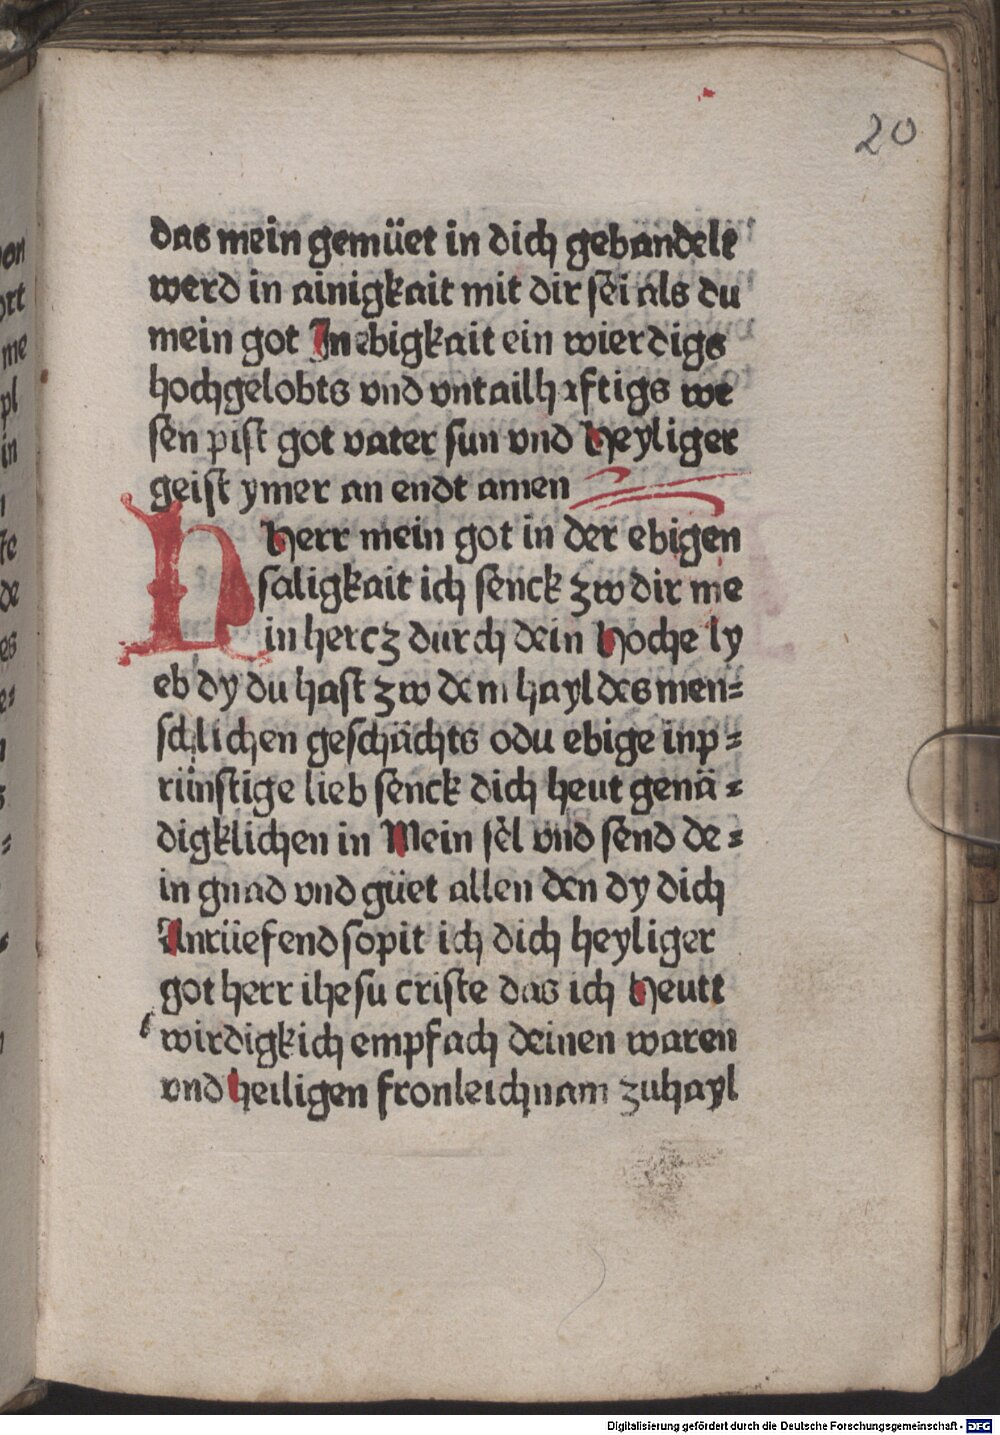 20
das mein gemüet in dich gebandelt
werd in ainigkait mit dir sei als du
mein got In ebigkait ein wierdigs
hochgelobts vnd vntailhaftigs we
sen pist got vater sun vnd heyliger
geist ymer an endt amen
H Herr mein got in der ebigen
saligkait ich senck zw dir me
in hercz durch dein hoche ly
eb dy du hast zw dem hayl des men⸗
schlichen geschächts odu ebige inp⸗
rünstige lieb senck dich heut genä⸗
digklichen in Mein sel vnd send de⸗
in gnad vnd güet allen den dy dich
Anrüefend so pit ich dich heyliger
got herr ihesu criste das ich heutt
wirdigkich empfach deinen waren
vnd heiligen fronleichnam zu hayl
von
ort
me
pl
in
te
de
es
Digitalisierung gefördert durch die Deutsche Forschungsgemeinschaft - DFG